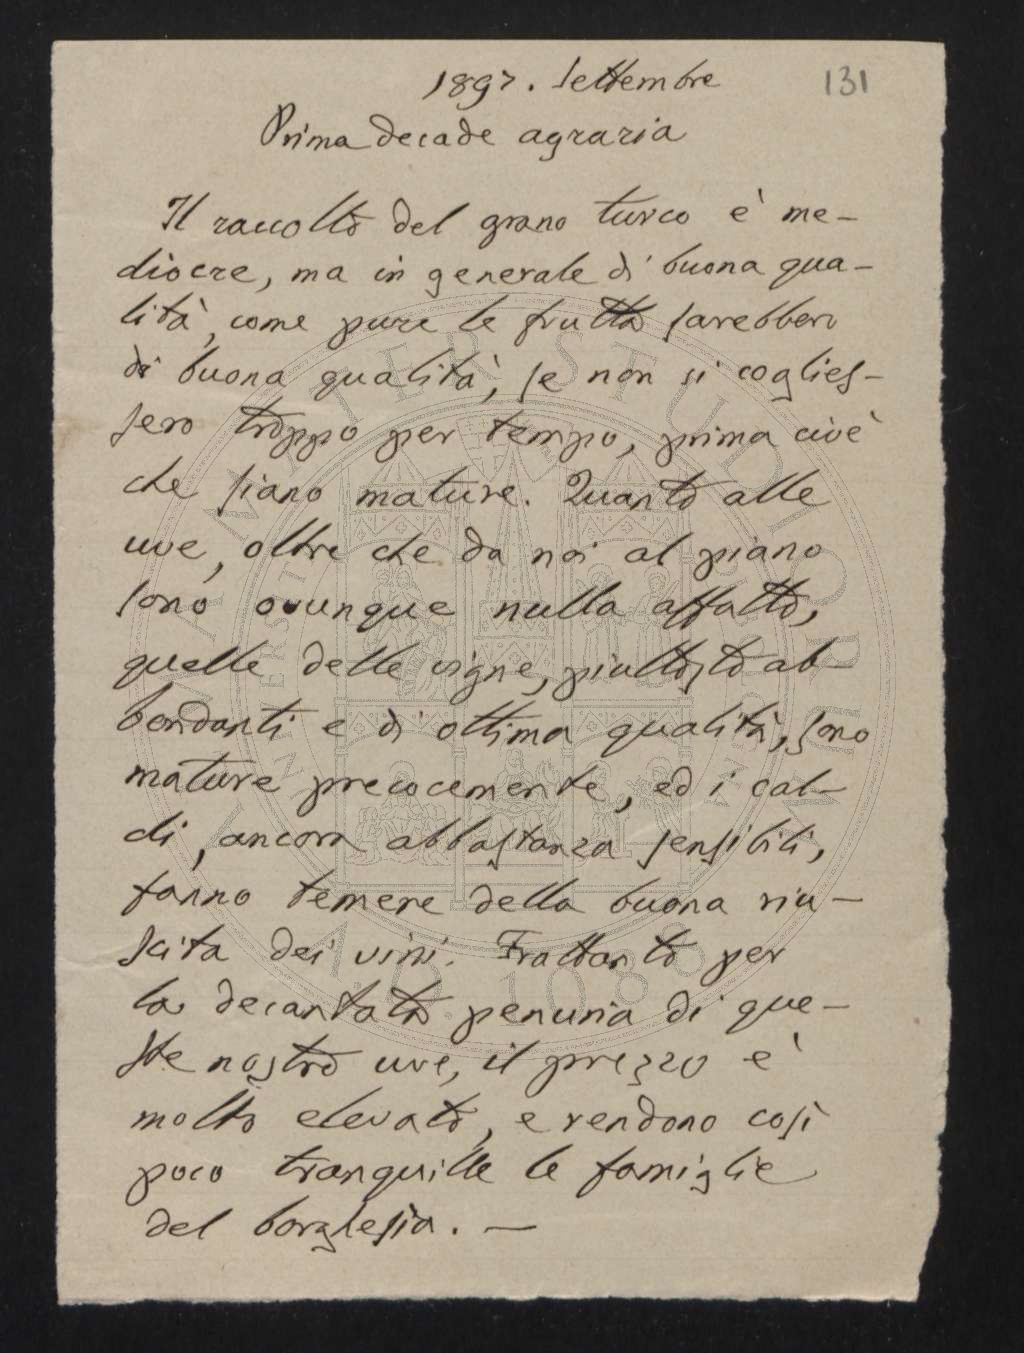 1897. Settembre
131
Prima decade agraria
Il raccolto del grano turco è me-
diocre, ma in generale di buona qua-
lità, come pure le frutta sarebbero
di buona qualità, se non si coglies-
sero troppo per tempo, prima cioè
che siano mature. Quanto alle
uve, oltre che da noi al piano
sono ovunque nulla affatto,
quelle delle vigne, piuttosto ab-
bondanti e di ottima qualità, sono
mature precocemente, ed i cal-
di, ancora abbastanza sensibili,
fanno temere della buona riu-
scita dei vini. Frattanto per
la decantata penuria di que-
ste nostre uve, il prezzo è
molto elevato, e rendono così
poco tranquille le famiglie
del borghesia. —
ALMA MATER STUDIORUM
A.D. 1088